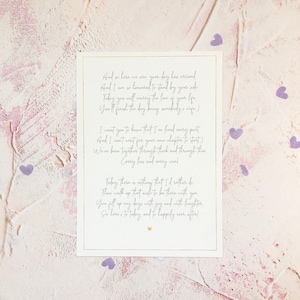 And so here we are, your day has arrived
And I am so honoured to stand by your side
Today you will marry the love of your life
You'll found the

I want you to know that I've loved every part
And I can't wait for your new chapter to start!
We've been together through thick and through thin

Today there is nothing that I'd rather do
Than walk up that aisle to be there with you
You fill up my days with joy and with laughter
So here's to today, and to happily ever after!